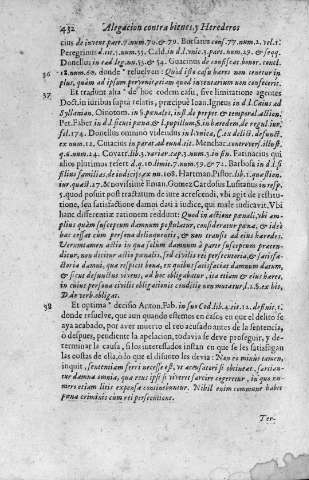 432 Alegacion contra bienes, y Herederos
cius de invent. par. 7. num. 70. & 79. Borsatus cons. 77. num. 2. vol. 1.
Peregrinus d. tit. 5. num. 55. Cald. in d. l. unic. 3. part. num. 29. & seqq.
Donellus in tad. leg. nu. 53. & 54. Guacinus de confiscat. bonor. concl.
36 12. num. 60. donde resuelven: Quid isto casu hares non tenetur in
plus, quàm ad ipsum pervenit
37 Et tradunt alia de hoc eodem casu, sive limitatione agentes
Doct. in iuribus supra relatis, præcipuè Ioan. Igneus in d. l. Caius ad
Syllanian. Oinotom. in §. pœnales, inst. de perpet. & temporal. action.
Pet. Faber in d. l. sicuti pœna & l. pupillum, §. in hæredem, de regul. iur.
fol. 174. Donellus omnino videndus in l. unica, C. ex delict. defunct.
ex num. 12. Cutacius in parat. ad eund. tit. Menchac. controvers. illust.
q. 4. num. 14. Covar. lib. 3. variar. cap. 3. num. 3. in fin. Farinacius qui
alios plurimos refert d. q. 10. limit. 7. num. 59. & 71. Barbosa in d. l. si
filius familias, de iudicijs, ex nu. 108. Hartman. Pistor. lib. 1. quæstion.
iur. quæst. 17. & novissimè Eman. Gomez Cardosus Lusitanus in resp.
5. quod posuit post tractatum de iure acrescendi, ubi agit de restitu-
tione, seu satisfactione damni dati à iudice, qui malè iudicavit. Vbi
hanc differentiæ rationem reddunt: Quod in actione pœnali, ubi am-
plius quàm susceptum damnum postulatur, consideratur pœna, & ideò
hæc cessat cum persona delinquentis, & non transit ad eius hæredes.
Verumtamen actio in qua solùm damnum à parte susceptum præten-
ditur, non dicitur actio pœnalis, sed civilis rei persecutoria, & satisfa-
ctoria damni, quæ respicit bona, ex quibus satisfaciat damnum datum,
& sicut defunctus vivens, ad hoc obligabatur, ita etiam & eius hæres,
in cuius persona civilis obligationis conditio non mutatur, d. l. 2. ex bis,
D. de verb. obligat.
38 Et optima decisio Anton. Fab. in suo Cod. lib. 4. tit. 12. definit. 1.
donde resuelve, que aun quando estemos en caso, en que el delito se
aya acabado, por aver muerto el reo acusado antes de la sentencia,
o despues, pendiente la apelacion, todavia se deve proseguir, y de-
terminar la causa, si los interessados instan en que se les satisfagan
las costas de ella, o lo que el difunto les devia: Non eo minùs tamen,
inquit, sententiam ferri necesse est, ut accusatori si obtineat, sarcian-
tur damna omnia, quæ reus ipse si viveret sarcire cogeretur, in quo nu-
mero etiam litis expensæ continebuntur. Nihil enim commune habet
pœna criminis cum rei persecutione.
Ter-